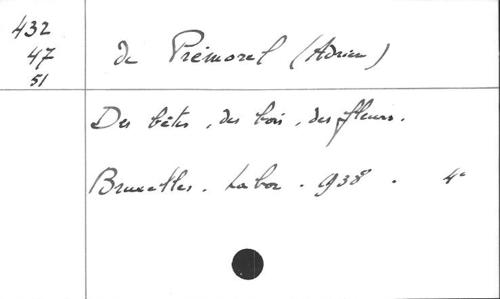 432
47
51
de Prémorel (Adrien)
Des bêtes, des bois, des fleurs.
Bruxelles. Labor. 938. 4°